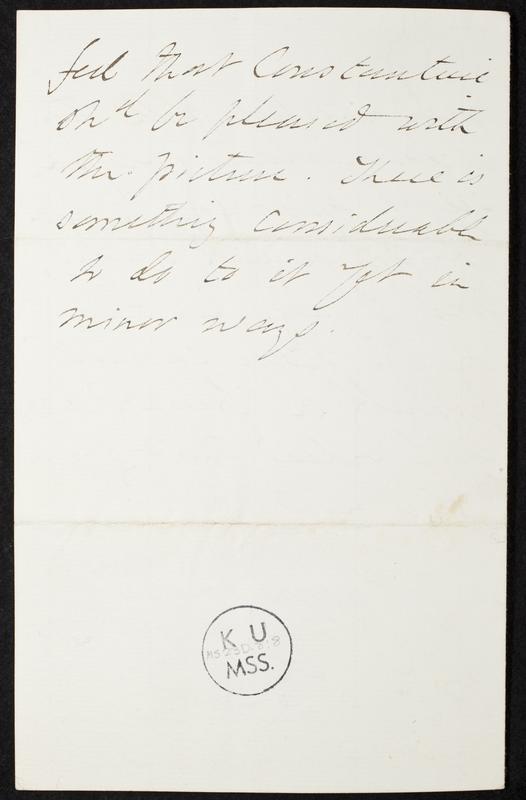 feel that Constantine
shd be pleased with
the picture. There is
something considerable
to do to it yet in
minor ways.
K U
MS 23D:8.8
MSS.